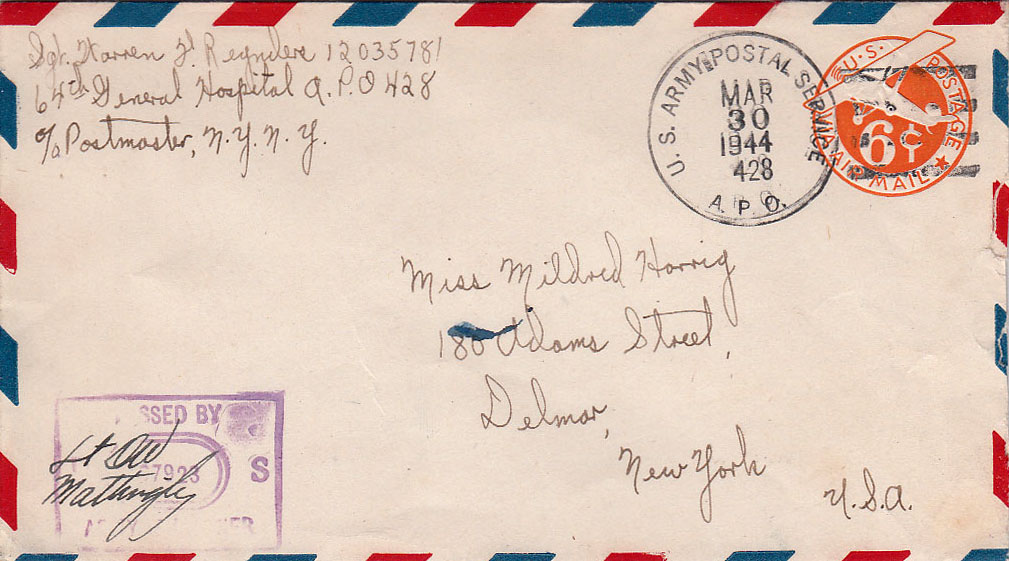 Sgt. Warren F. Reynders 12035781
64th General Hospital A.P.O 428
c/o Postmaster, N.Y. N.Y.
U. S. ARMY POSTAL SERVICE
MAR
30
1944
428
A. P. O.
U.S. POSTAGE
6¢
VIA AIR MAIL
Miss Mildred Horrig
180 Adams Street,
Delmar,
New York
U.S.A.
SSED BY
7923
S
Lt
Mattingly